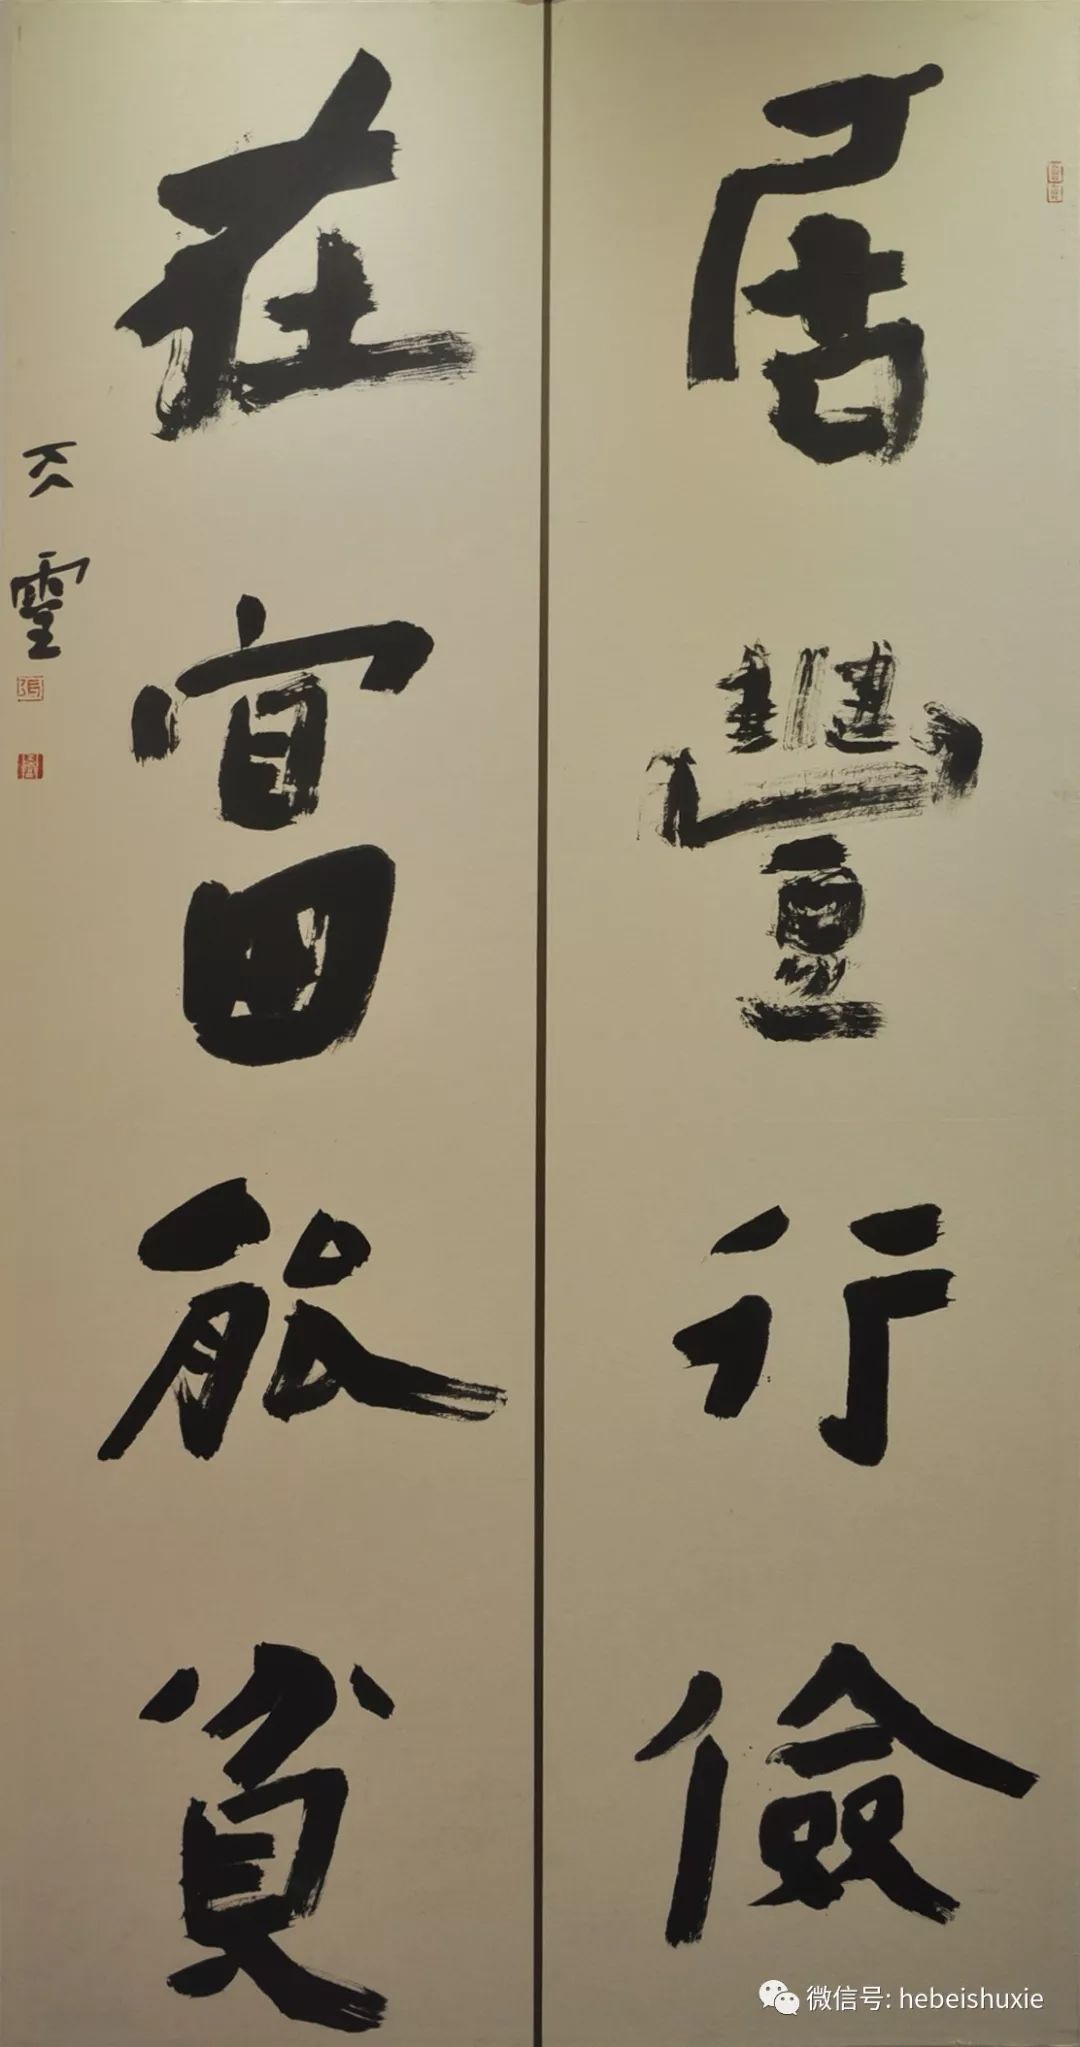 居豐行儉
在富能貧
天靈
微信号: hebeishuxie